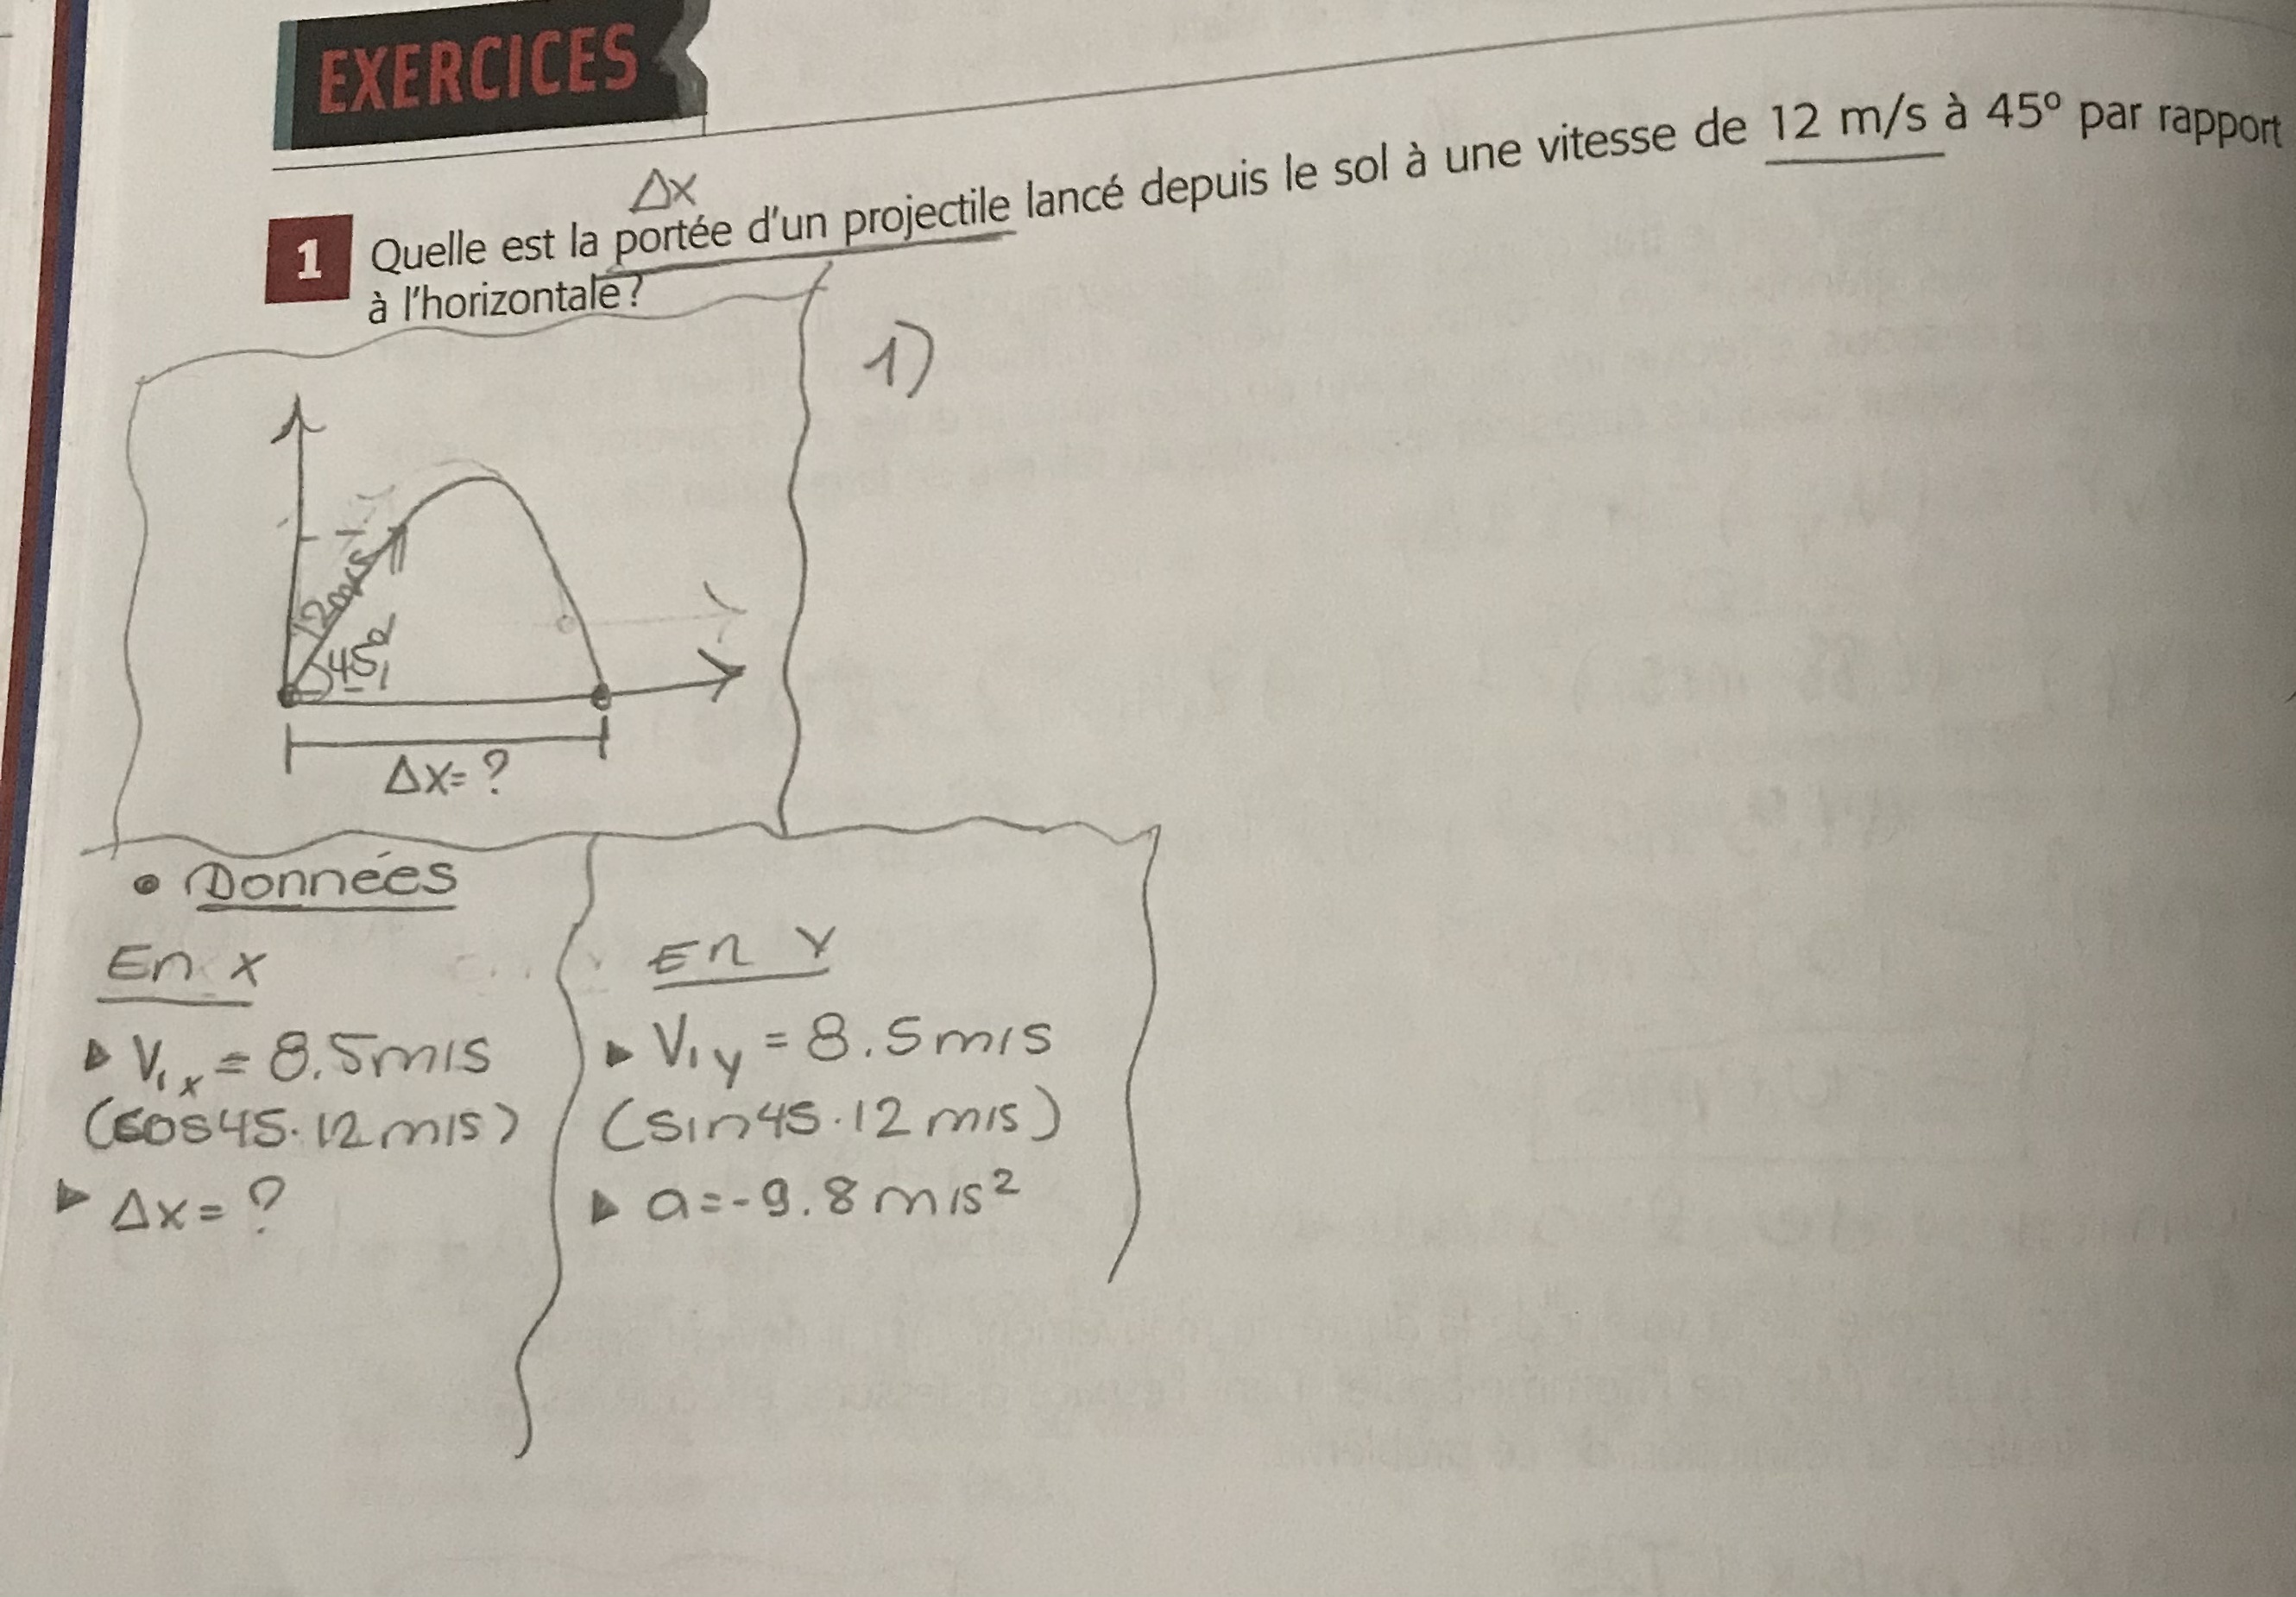 EXERCICES
1 Quelle est la portée d'un projectile lancé depuis le sol à une vitesse de 12 m/s à 45° par rapport
Δx
à l'horizontale?
1)
12m/s
45°
Δx=?
• Données
En x
V₁ₓ = 8.5m/s
(cos45·12m/s)
Δx=?
En Y
V₁y = 8.5m/s
(sin45·12m/s)
a=-9.8m/s²